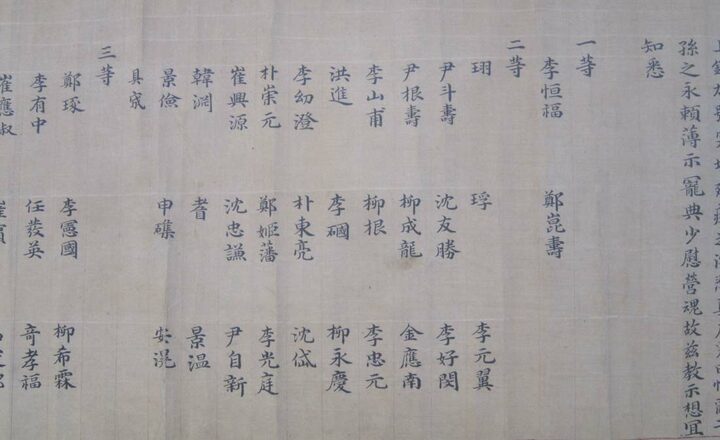 孫之永賴薄示寵典少慰營魂故茲教示想宜
知悉
一等
李恒福 鄭崑壽
二等
珝 琈 李元翼
尹斗壽 沈友勝 李好閔
尹根壽 柳成龍 金應南
李山甫 柳根 李忠元
洪進 李𥕏 柳永慶
李幼澄 朴東亮 沈岱
朴崇元 鄭姬藩 李光庭
崔興源 沈忠謙 尹自新
韓渕 耆 景温
景儉 申磼 安滉
具宬
三等
鄭琢 李憲國 柳希霖
李有中 任發英 奇孝福
崔應淑 崔賓